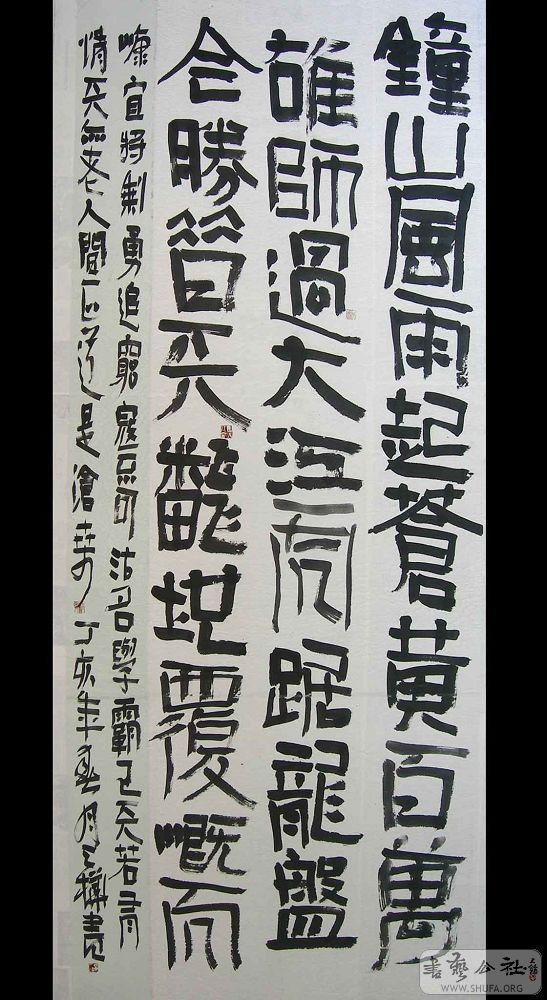 鐘山風雨起蒼黃百萬
雄師過大江虎踞龍盤
今勝昔天翻地覆慨而
慷宜將剩勇追窮寇不可沽名學霸王天若有
情天亦老人間正道是滄桑 丁亥年春月 書
書藝公社
WWW.SHUFA.ORG